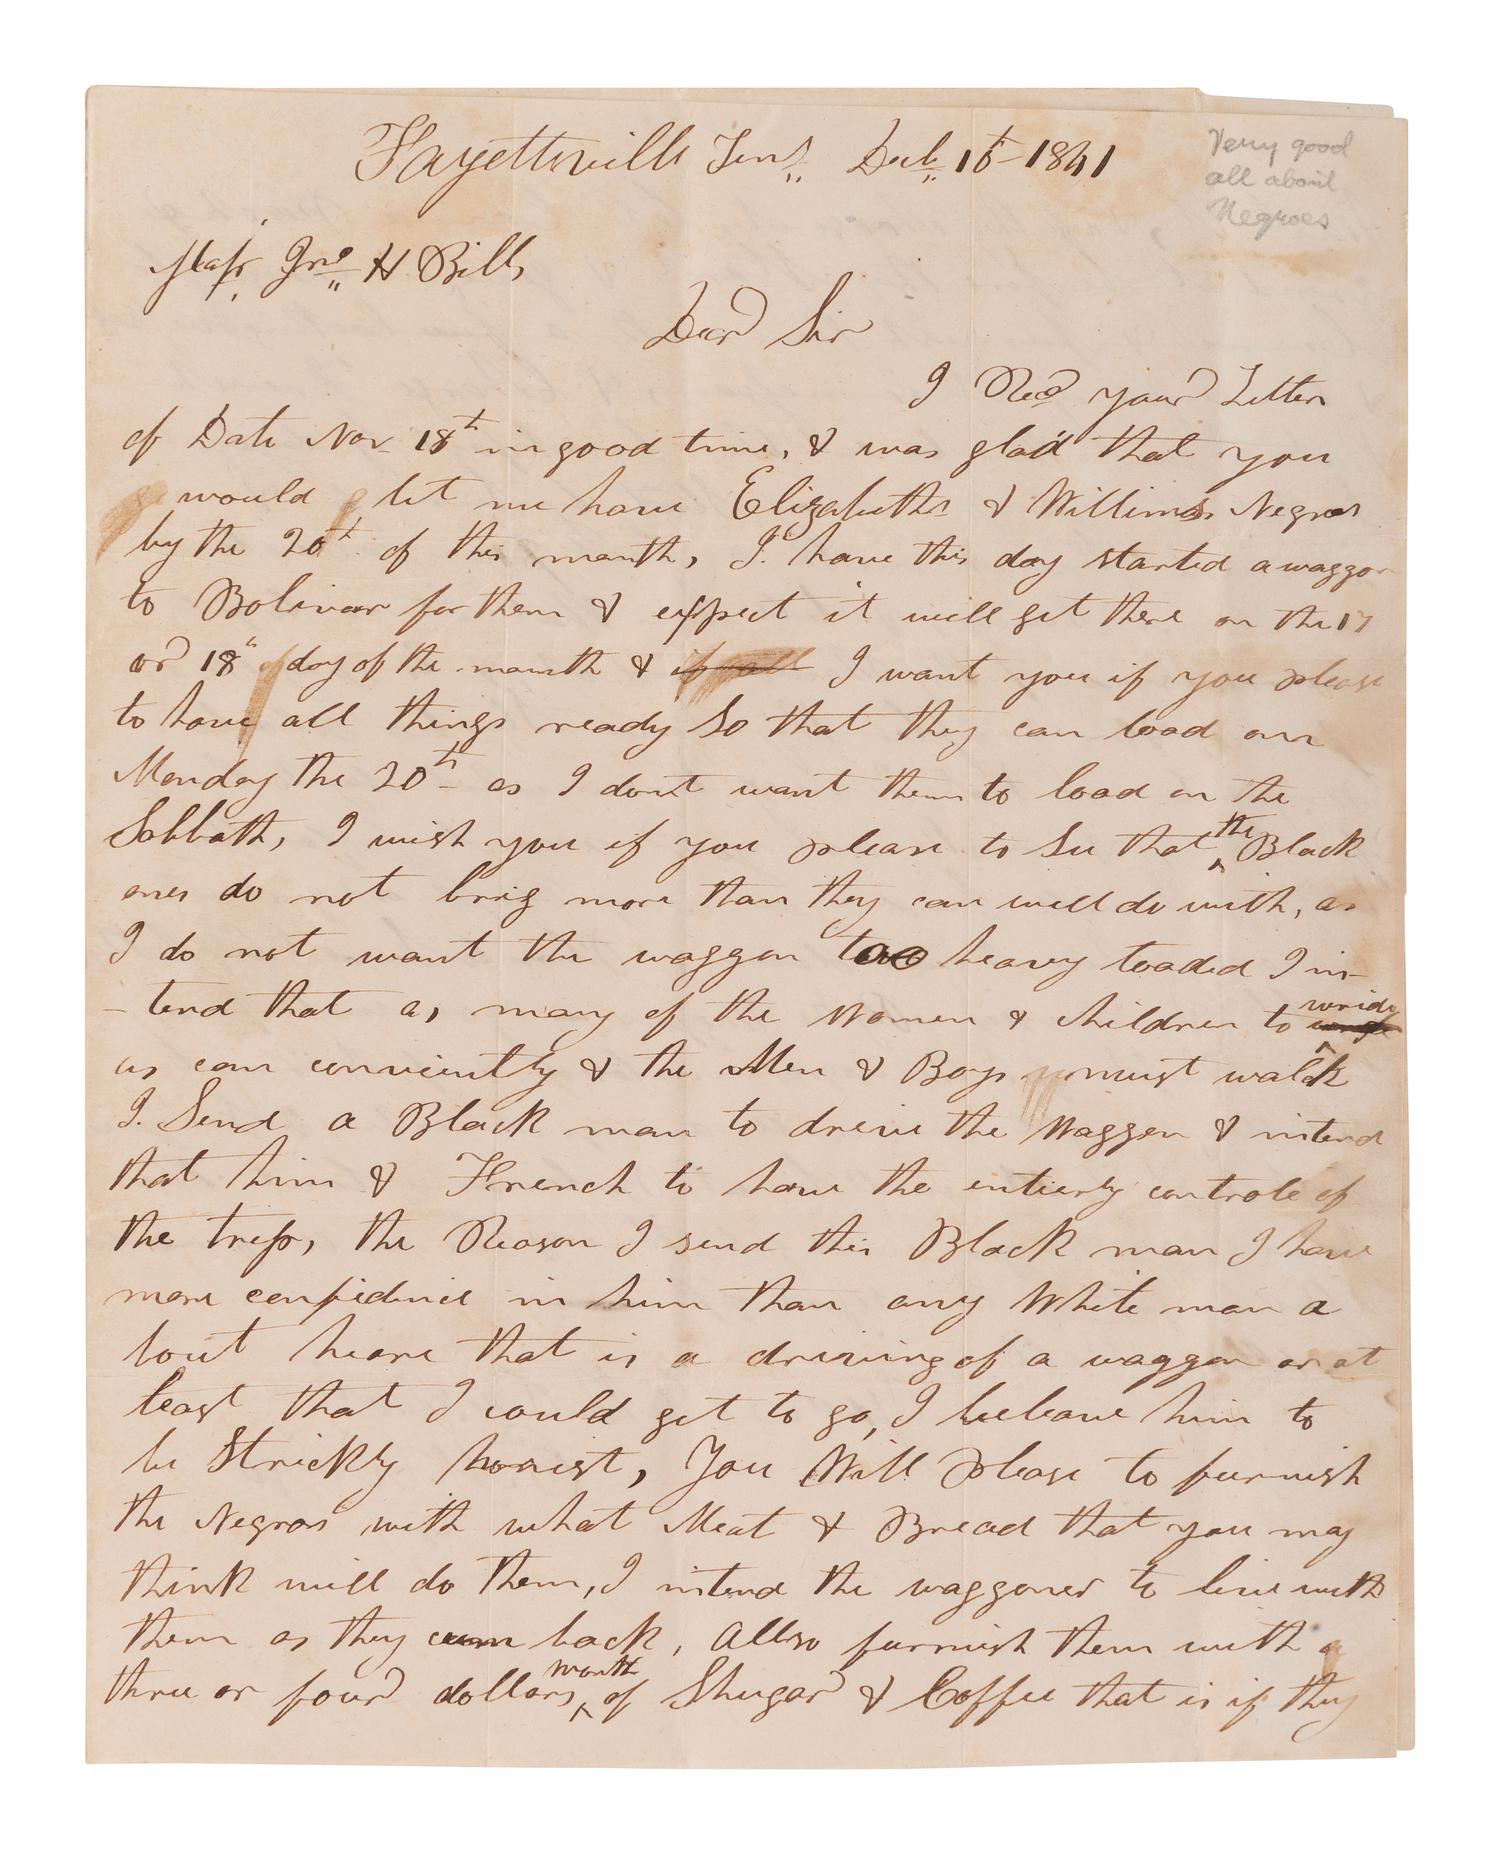 Fayettville Tens,, Decb,, 16t 1841
Very good
all about
Negroes
Majr, Jno,, H Bills,
Dear Sir
I Recd your Letter
of Date Nov 18t in good time, & was glad that you
would let me have Elizabeths & Willims Negros
by the 20t of this month, I. have this day started a waggon
to Bolivar for them & expect it will get there on the 17
or 18th day of the month & if all I want you if you please
to have all things ready So that they can load on
Monday the 20th as I dont want them to load on the
Sabbath, I wish you if you please to See that the Black
ones do not brig more than they can well do with, as
I do not want the waggon too heavy loaded I in-
-tend that as many of the Women & children to wride
as can conviently & the Men & Boys must walk
I. Send a Black man to drive the Waggon & intend
that him & French to have the entierly controle of
the trip, the Reason I send this Black man I have
more confidince in him than any White man a
bout heare that is a driving of a waggon or at
least that I could get to go, I beleave him to
be Strickly honist, You Will please to furnish
the Negros with what Meat & Bread that you may
think will do them, I intend the waggoner to live with
them as they cum back, Allso furnish them with a
three or four dollars worth of Shugar & Coffee that is if they